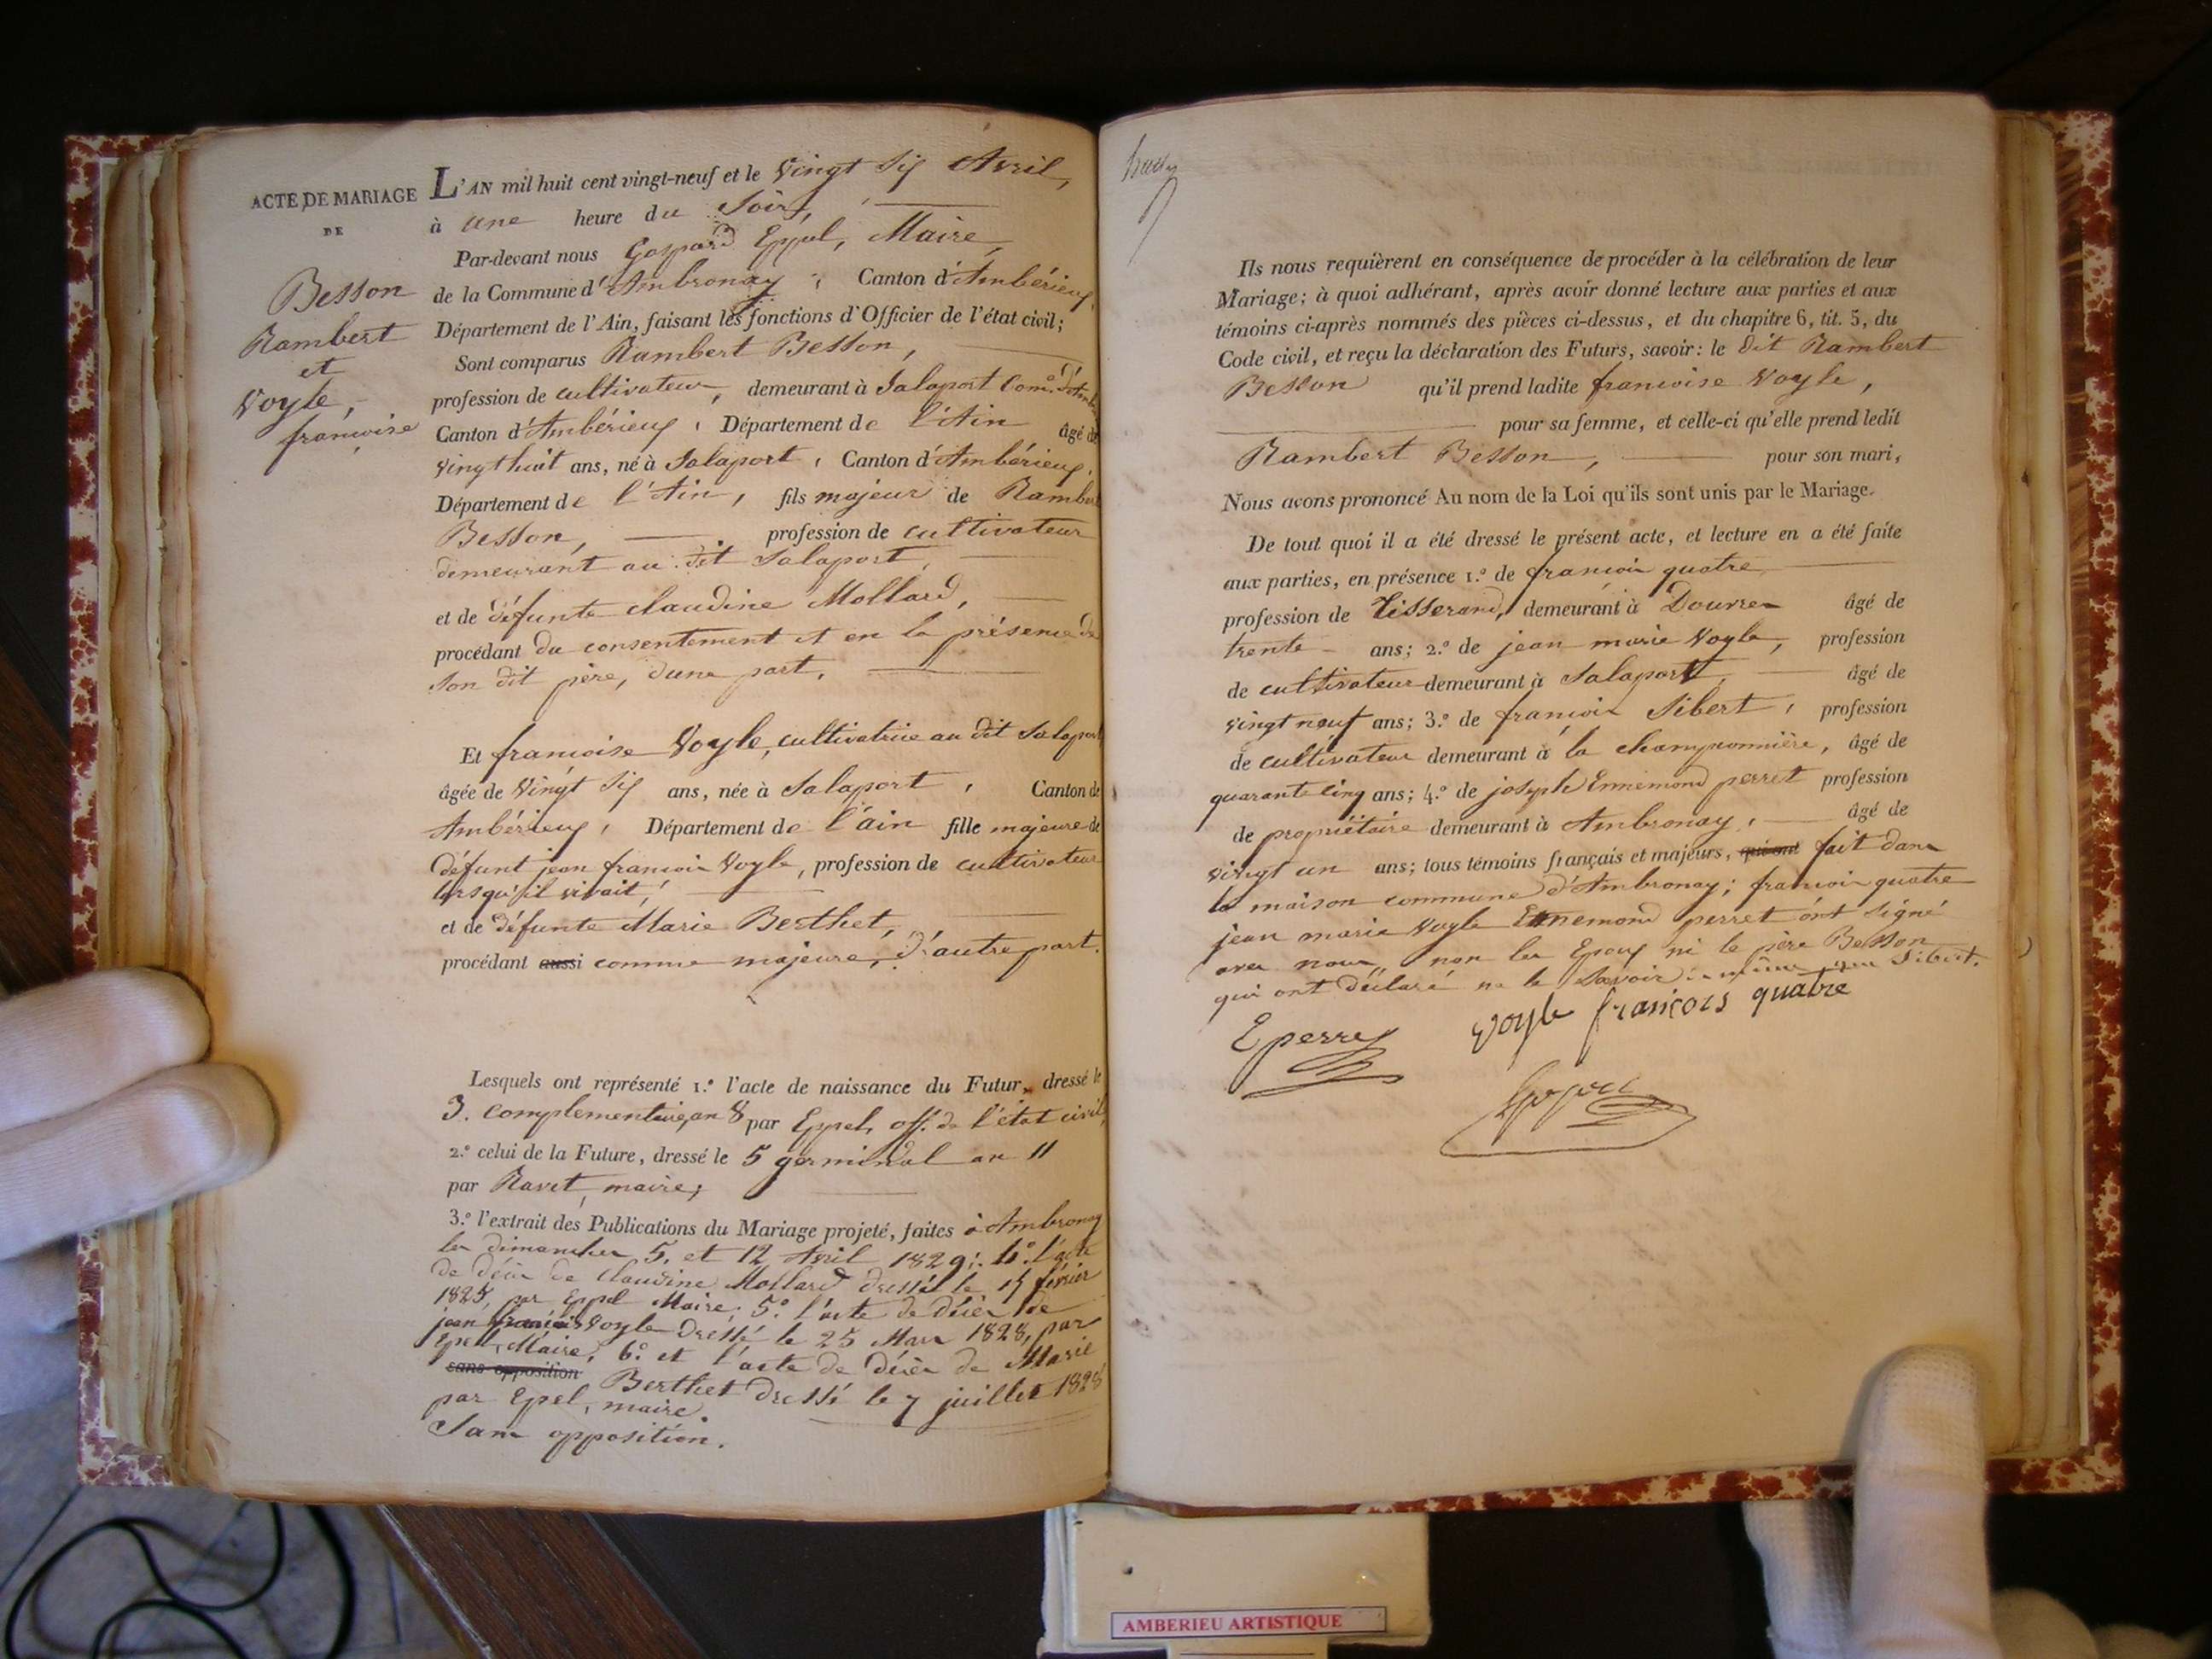 ACTE DE MARIAGE
DE
Besson
Rambert
et
Voyle,
françoise
L'AN mil huit cent vingt-neuf et le Vingt Six Avril,
à une heure du Soir,
Par-devant nous Gaspard Eppel, Maire,
de la Commune d'Ambronay, Canton d'Ambérieux,
Département de l'Ain, faisant les fonctions d'Officier de l'état civil;
Sont comparus Rambert Besson,
profession de cultivateur, demeurant à Salaport Com.e d'Amb
Canton d'Ambérieux, Département de l'Ain âgé de
vingt huit ans, né à Salaport, Canton d'Ambérieux,
Département de l'Ain, fils majeur de Rambert
Besson, profession de cultivateur
demeurant au dit Salaport,
et de défunte claudine Mollard,
procédant du consentement et en la présence de
son dit père, d'une part,
Et françoise Voyle, cultivatrice au dit Salaport
âgée de Vingt Six ans, née à Salaport, Canton de
Ambérieux, Département de l'ain fille majeure de
défunt jean françois Voyle, profession de cultivateur
lorsqu'il vivait,
et de défunte Marie Berthet,
procédant aussi comme majeure, d'autre part.
Lesquels ont représenté 1.º l'acte de naissance du Futur, dressé le
3. complementaire an 8 par Eppel, off. de l'état civil,
2.º celui de la Future, dressé le 5 germinal an 11
par Ravet, maire;
3.º l'extrait des Publications du Mariage projeté, faites à Ambronay
les dimanches 5. et 12 Avril 1829; 4.º l'acte
de décès de Claudine Mollard dressé le 15 février
1825, par Eppel Maire; 5.º l'acte de décès de
jean françois Voyle dressé le 25 Mars 1828, par
Epel, Maire; 6.º et l'acte de décès de Marie
sans opposition Berthet dressé le 7 juillet 1828
par Epel, maire.
Sans opposition.
Ils nous requièrent en conséquence de procéder à la célébration de leur
Mariage; à quoi adhérant, après avoir donné lecture aux parties et aux
témoins ci-après nommés des pièces ci-dessus, et du chapitre 6, tit. 5, du
Code civil, et reçu la déclaration des Futurs, savoir: le dit Rambert
Besson qu'il prend ladite françoise Voyle,
pour sa femme, et celle-ci qu'elle prend ledit
Rambert Besson, pour son mari,
Nous avons prononcé Au nom de la Loi qu'ils sont unis par le Mariage.
De tout quoi il a été dressé le présent acte, et lecture en a été faite
aux parties, en présence 1.º de françois quatre
profession de Tisserand, demeurant à Douvres âgé de
trente ans; 2.º de jean marie Voyle, profession
de cultivateur demeurant à Salaport, âgé de
vingt neuf ans; 3.º de françois Sibert, profession
de cultivateur demeurant à la championnière, âgé de
quarante cinq ans; 4.º de joseph Ennemond perret profession
de propriétaire demeurant à Ambronay, âgé de
vingt un ans; tous témoins français et majeurs, qui ont fait dans
la maison commune d'Ambronay; françois quatre
jean marie Voyle Ennemond perret ont signé
avec nous, non les Epoux ni le père Besson
qui ont déclaré ne le savoir de même que Sibert.
E perret
voyle françois quatre
AMBERIEU ARTISTIQUE